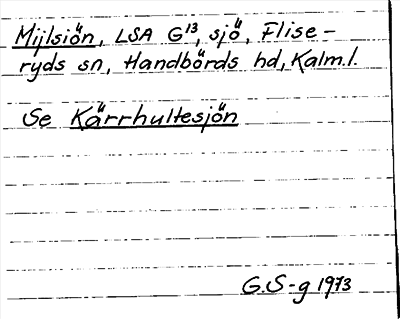 Mijlsiön, LSA G¹³, sjö, Flise-
ryds sn, Handbörds hd, Kalm.l.
Se Kärrhultesjön
G.S-g 1973